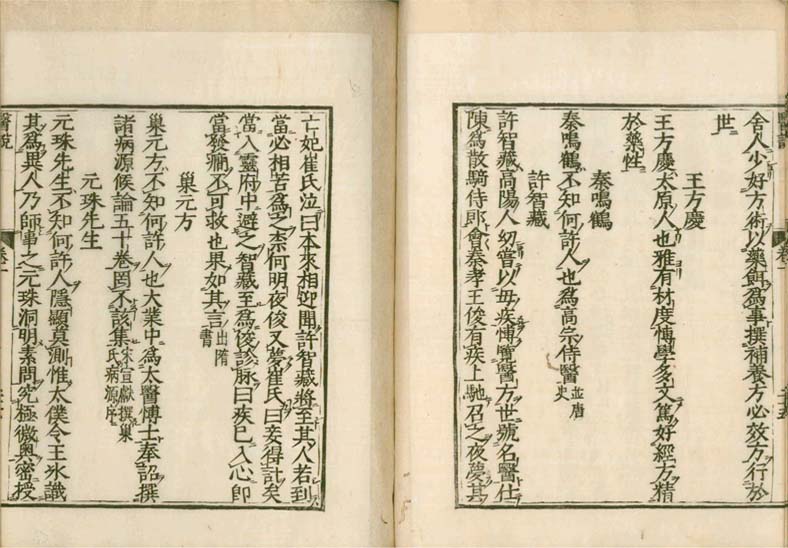 舍人少好方術以藥餌爲事撰補養方必效方行於
世
王方慶
王方慶太原人也雅有材度博學多文篤好經方精
於藥性
秦鳴鶴
秦鳴鶴不知何許人也爲高宗侍醫並唐
史
許智藏
許智藏高陽人幼嘗以母疾博覽醫方世號名醫仕
陳爲散騎侍郎會秦孝王俊有疾上馳召之夜夢其
亡妃崔氏泣曰本來相迎聞許智藏將至其人若到
當必相苦爲之柰何明夜俊又夢崔氏曰妾得計矣
當入靈府中避之智藏至爲俊診脉曰疾已入心卽
當發癎不可救也果如其言出隋
書
巢元方
巢元方不知何許人也大業中爲太醫博士奉詔撰
諸病源候論五十卷罔不該集宋宣獻撰巢
氏病源序
元珠先生
元珠先生不知何許人隱顯莫測惟太僕令王冰識
其爲異人乃師事之元珠洞明素問究極微奧密授
醫說
卷一